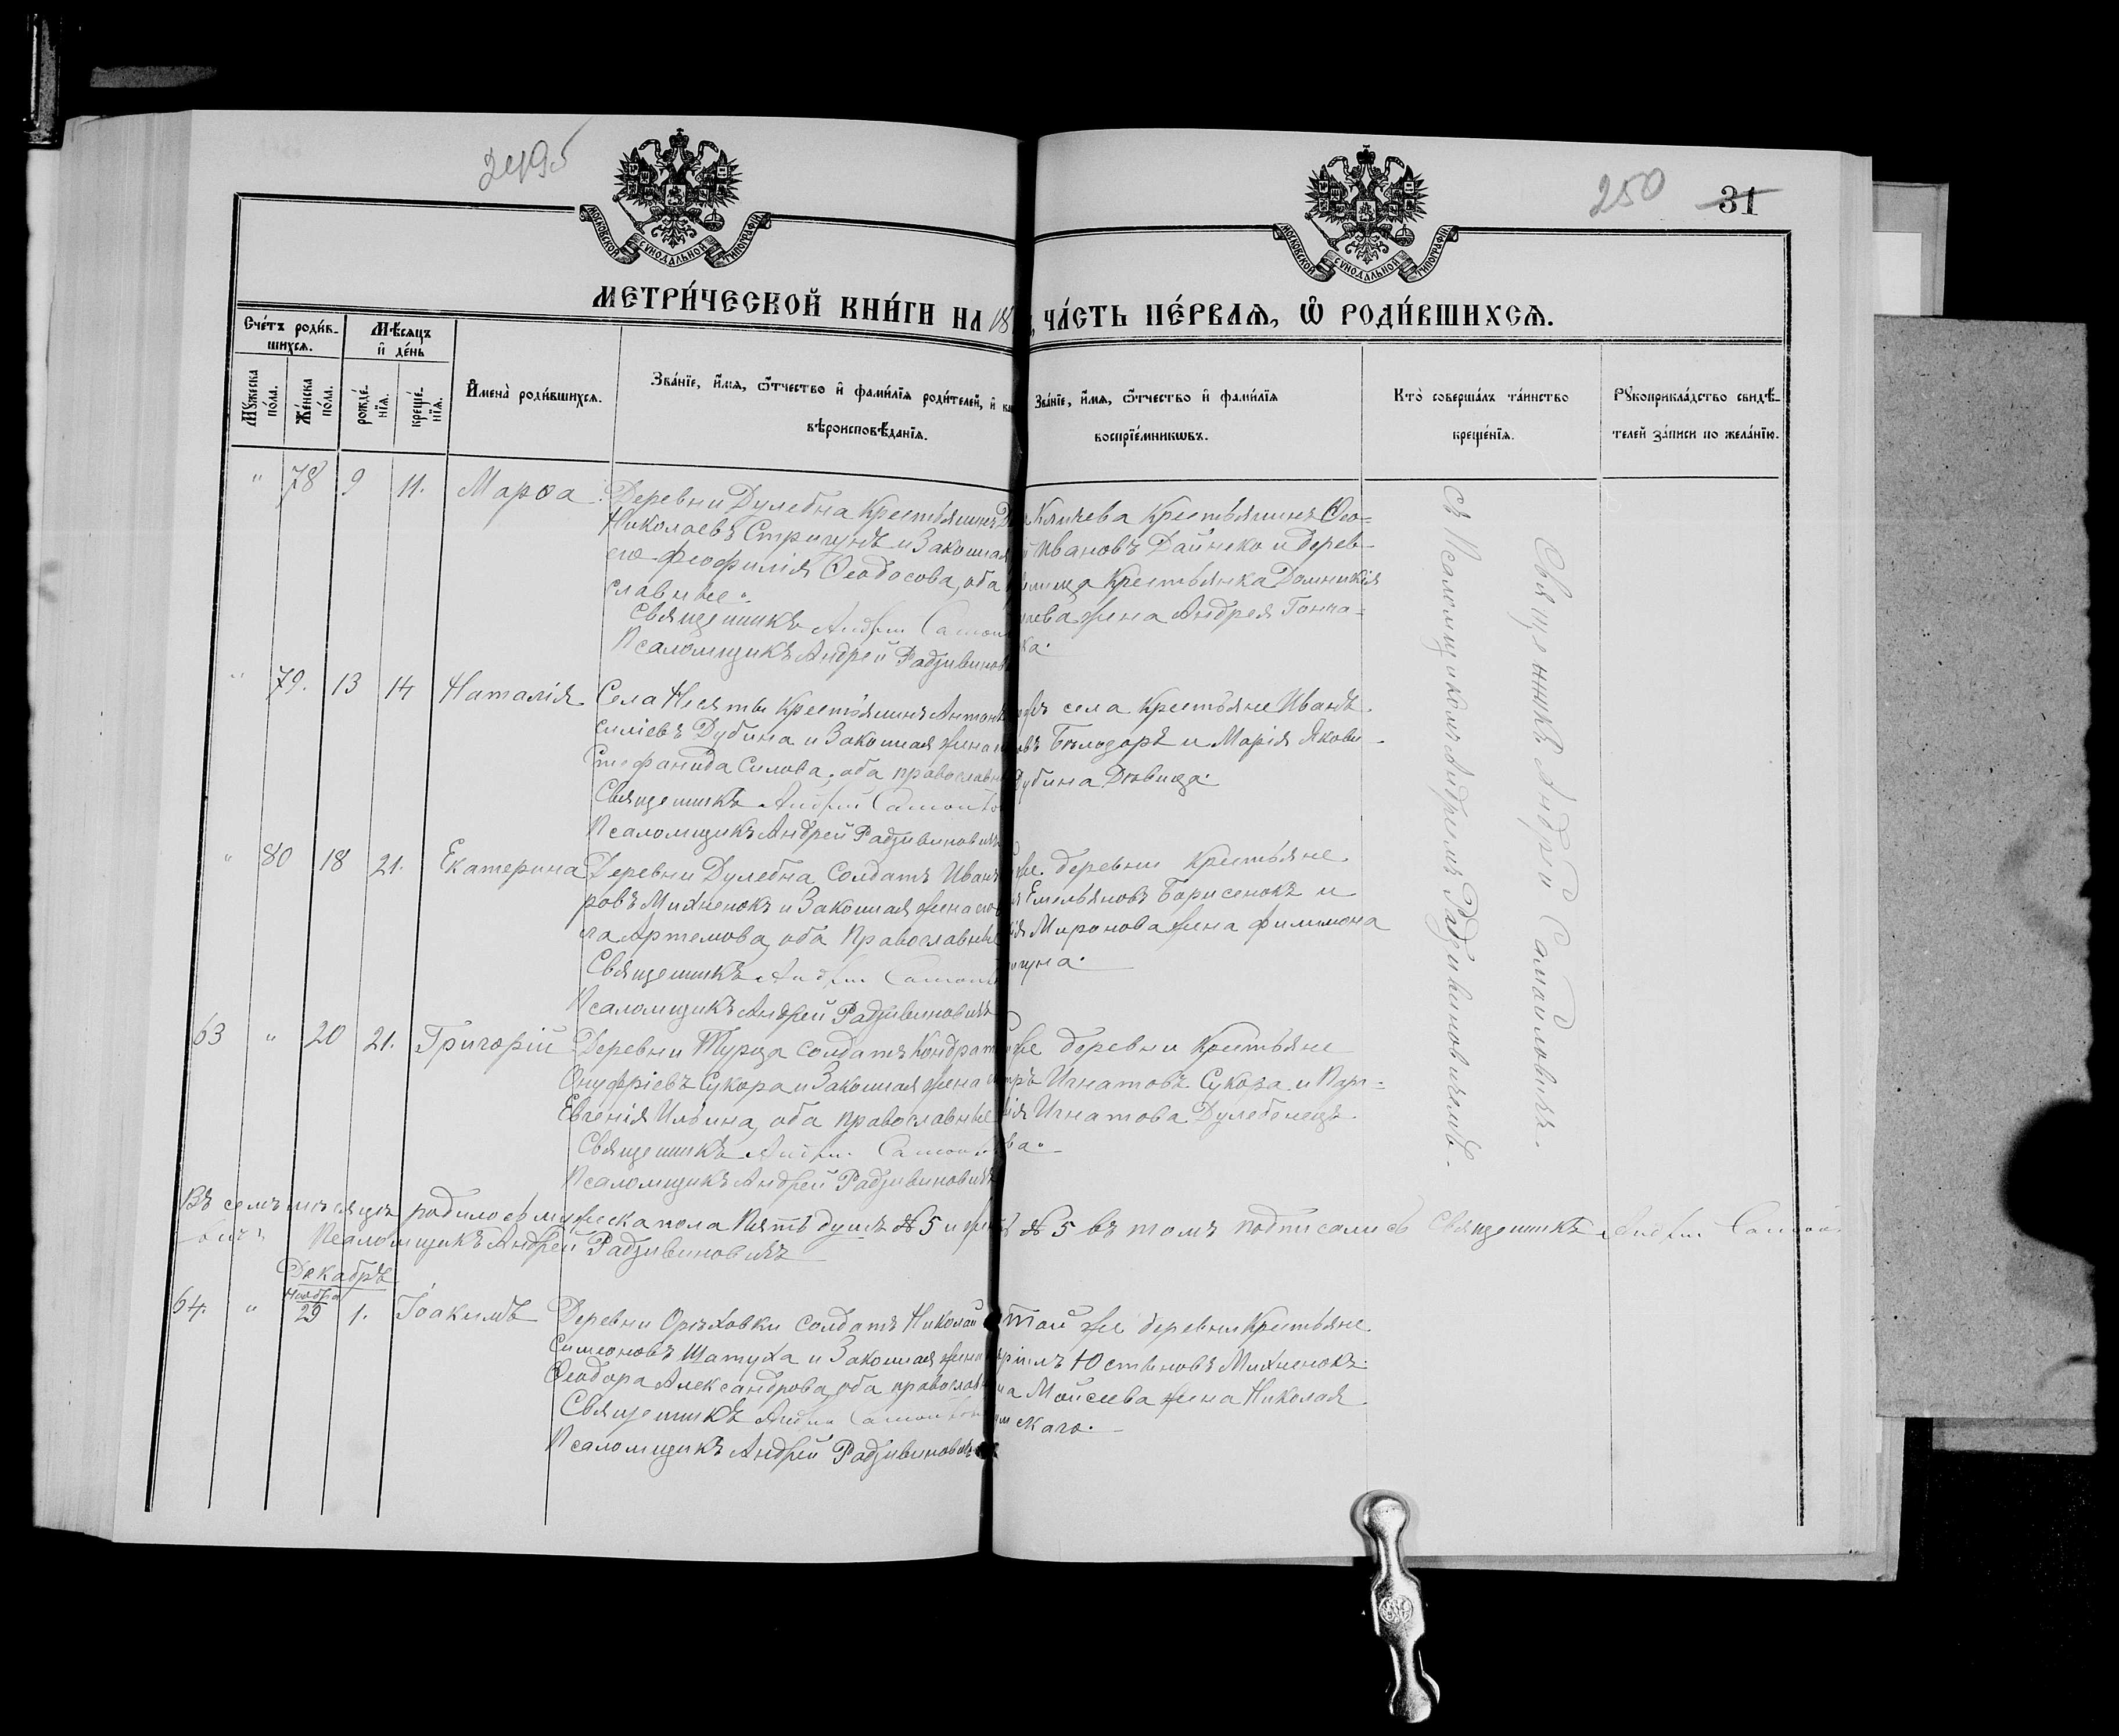 249б
250 31
МОСКОВСКОЙ СѴНОДАЛЬНОЙ ТИПОГРАФІИ
МОСКОВСКОЙ СѴНОДАЛЬНОЙ ТИПОГРАФІИ
МЕТРИ́ЧЕСКОЙ КНИ́ГИ НА 18
ЧА́СТЬ ПЕ́РВАЯ, Ѿ РОДИ́ВШИХСЯ.
Сче́тъ роди́в-
шихся.
Мѣ́сяцъ
и҆ де́нь
Му́жеска
по́ла.
Же́нска
по́ла.
рожде́-
нїя.
креще́-
нїя.
И҆мена̀ роди́вшихся.
Зва́нїе, и҆́мя, ѻ҆́тчество и҆ фами́лїя роди́телей, и҆
вѣроисповѣ́данїя.
Зва́нїе, и҆́мя, ѻ҆́тчество и҆ фами́лїя
воспрїе́мникѡвъ.
Кто̀ соверша́лъ та́инство
креще́нїя.
Рꙋкоприкла́дство свидѣ́-
телей за́писи по жела́нїю.
" 78 9 11. Марѳа
Деревни Дулебна Крестьянинъ
Николаевъ Стригунъ и Законная
его Феофилія Ѳеодосова, оба
славные.
Священникъ Андрей
Псаломщикъ Андрей Радзивинов
Кличева Крестьянинъ Ѳео-
Ивановъ Дайнеко и дерев-
Крестьянка Домникія
жена Андрея Гонча-
ка.
" 79. 13 14 Наталія
Села Несяты Крестьянинъ Антонъ
силіевъ Дубина и Законная жена
Стефанида Силова, оба православн
Священникъ Андрей
Псаломщикъ Андрей Радзивиновичъ
села Крестьяне Иванъ
овъ Бѣлодоръ и Марія Якови-
Дубина Дѣвица.
" 80 18 21. Екатерина
Деревни Дулебна Солдатъ Иванъ
ровъ Михненокъ и Законная жена его
га Артемова, оба Православные
Священникъ Андрей
Псаломщикъ Андрей Радзивиновичъ
же деревни Крестьяне
Емельяновъ Борисенокъ и
ія Миронова жена Филимона
гуна.
63 " 20 21. Григорій
Деревни Турца солдатъ Кондратъ
Онуфріевъ Сукора и Законная жена
Евгенія Ильина, оба православные
Священникъ Андрей
Псаломщикъ Андрей Радзивиновичъ
же деревни Крестьяне
тръ Игнатовъ Сукора и Пар-
ія Игнатова Дулебенецъ
ва.
Съ Псаломщикомъ Андреемъ Радзивиновичемъ.
Священникъ Андрей Самойловичъ.
Въ семъ мѣсяцѣ родилось мужеска пола Пять душъ № 5 и № 5 въ томъ подписались Священникъ Андрей Самой-
вичъ Псаломщикъ Андрей Радзивиновичъ
Декабрь
Ноября
64. " 29 1. Іоакимъ
Деревни Орѣховки солдатъ Николай
Симеоновъ Шатуха и Законная жена
Ѳеодора Александрова, оба православ
Священникъ Андрей
Псаломщикъ Андрей Радзивинович
Той же деревни Крестьяне
Юстиновъ Михненокъ
на Моисеева жена Николая
скаго.